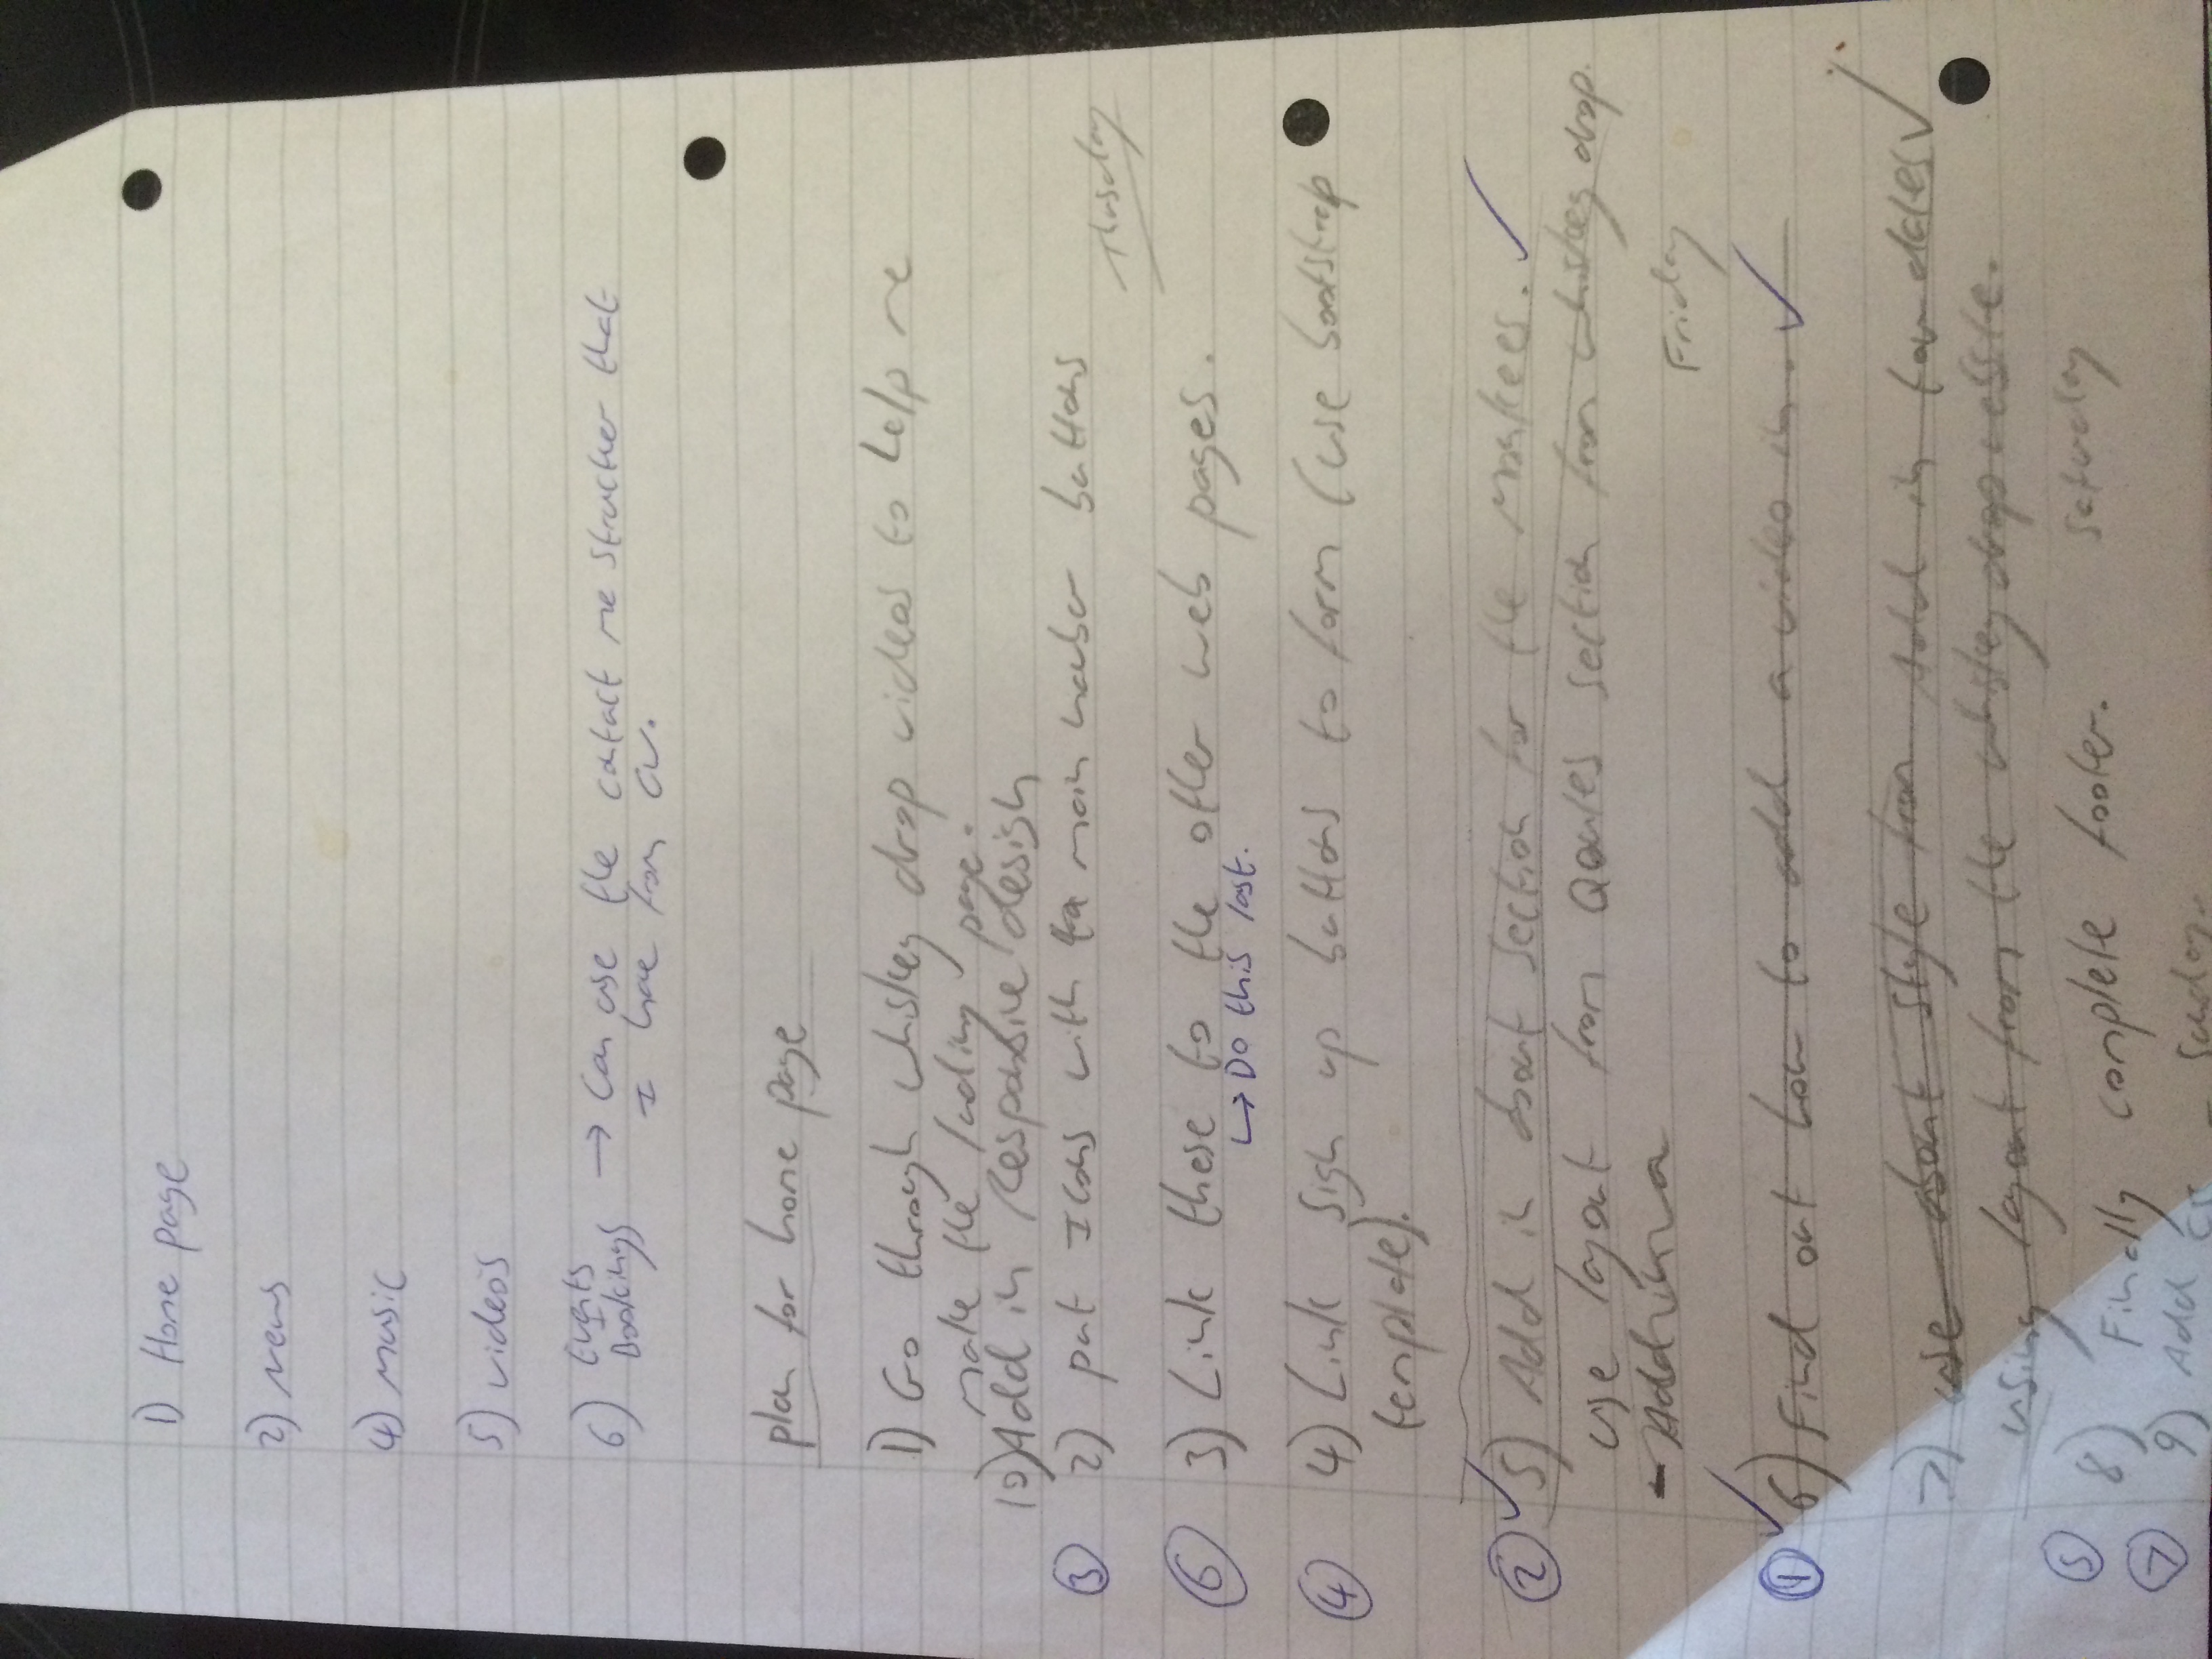 1) Home page
2) news
4) music
5) videos
6) Events
Bookings → Can use the contact me structer that
I have from cv.
plan for home page
1) Go through whiskey drop videos to help me
make the landing page.
10) Add in Responsive design
③ 2) put Icons with the main navbar buttons
Thursday
⑥ 3) Link these to the other web pages.
↳ Do this last.
④ 4) Link sign up buttons to form (use bootstrap
template).
② ✓ 5) Add in about section for the monkees. ✓
use layout from Quotes section from whiskey drop.
- Add in a
Friday
① ✓ 6) Find out how to add a video in. ✓
7) use about style from in
using layout from the whiskey drop website.
⑤ 8) Finally complete footer.
Saturday
⑦ 9) Add
- Sunday.